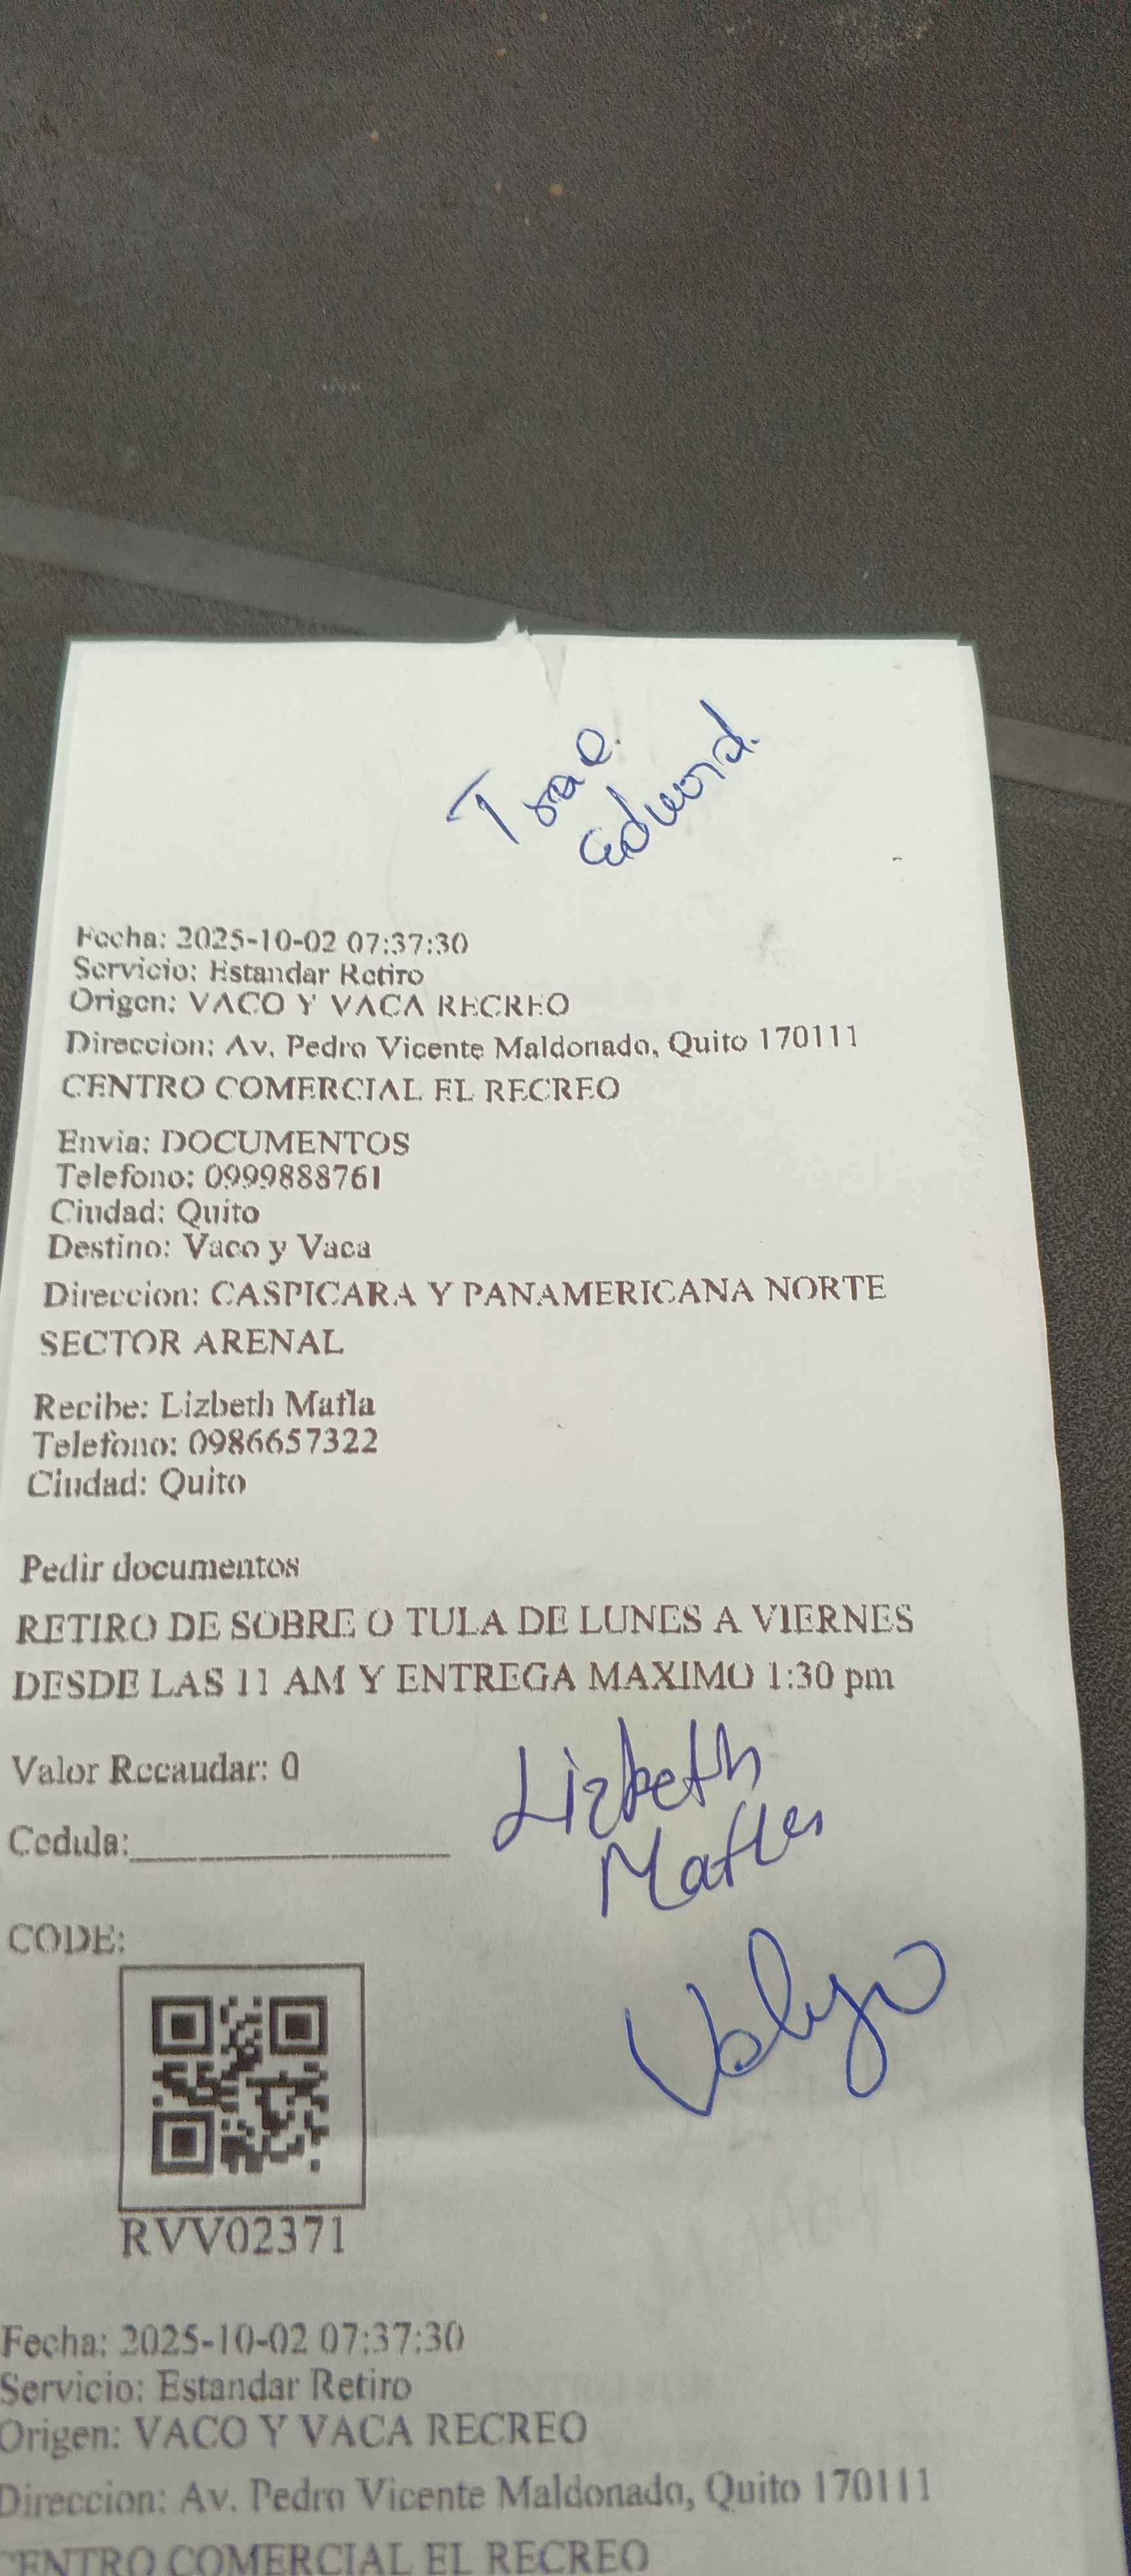 Edward.
Fecha: 2025-10-02 07:37:30
Servicio: Estandar Retiro
Origen: VACO Y VACA RECREO
Direccion: Av. Pedro Vicente Maldonado, Quito 170111
CENTRO COMERCIAL EL RECREO
Envia: DOCUMENTOS
Telefono: 0999888761
Ciudad: Quito
Destino: Vaco y Vaca
Direccion: CASPICARA Y PANAMERICANA NORTE
SECTOR ARENAL
Recibe: Lizbeth Mafla
Telefono: 0986657322
Ciudad: Quito
Pedir documentos
RETIRO DE SOBRE O TULA DE LUNES A VIERNES
DESDE LAS 11 AM Y ENTREGA MAXIMO 1:30 pm
Valor Recaudar: 0
Lizbeth
Mafla
Cedula:
CODE:
RVV02371
Fecha: 2025-10-02 07:37:30
Servicio: Estandar Retiro
Origen: VACO Y VACA RECREO
Direccion: Av. Pedro Vicente Maldonado, Quito 170111
CENTRO COMERCIAL EL RECREO